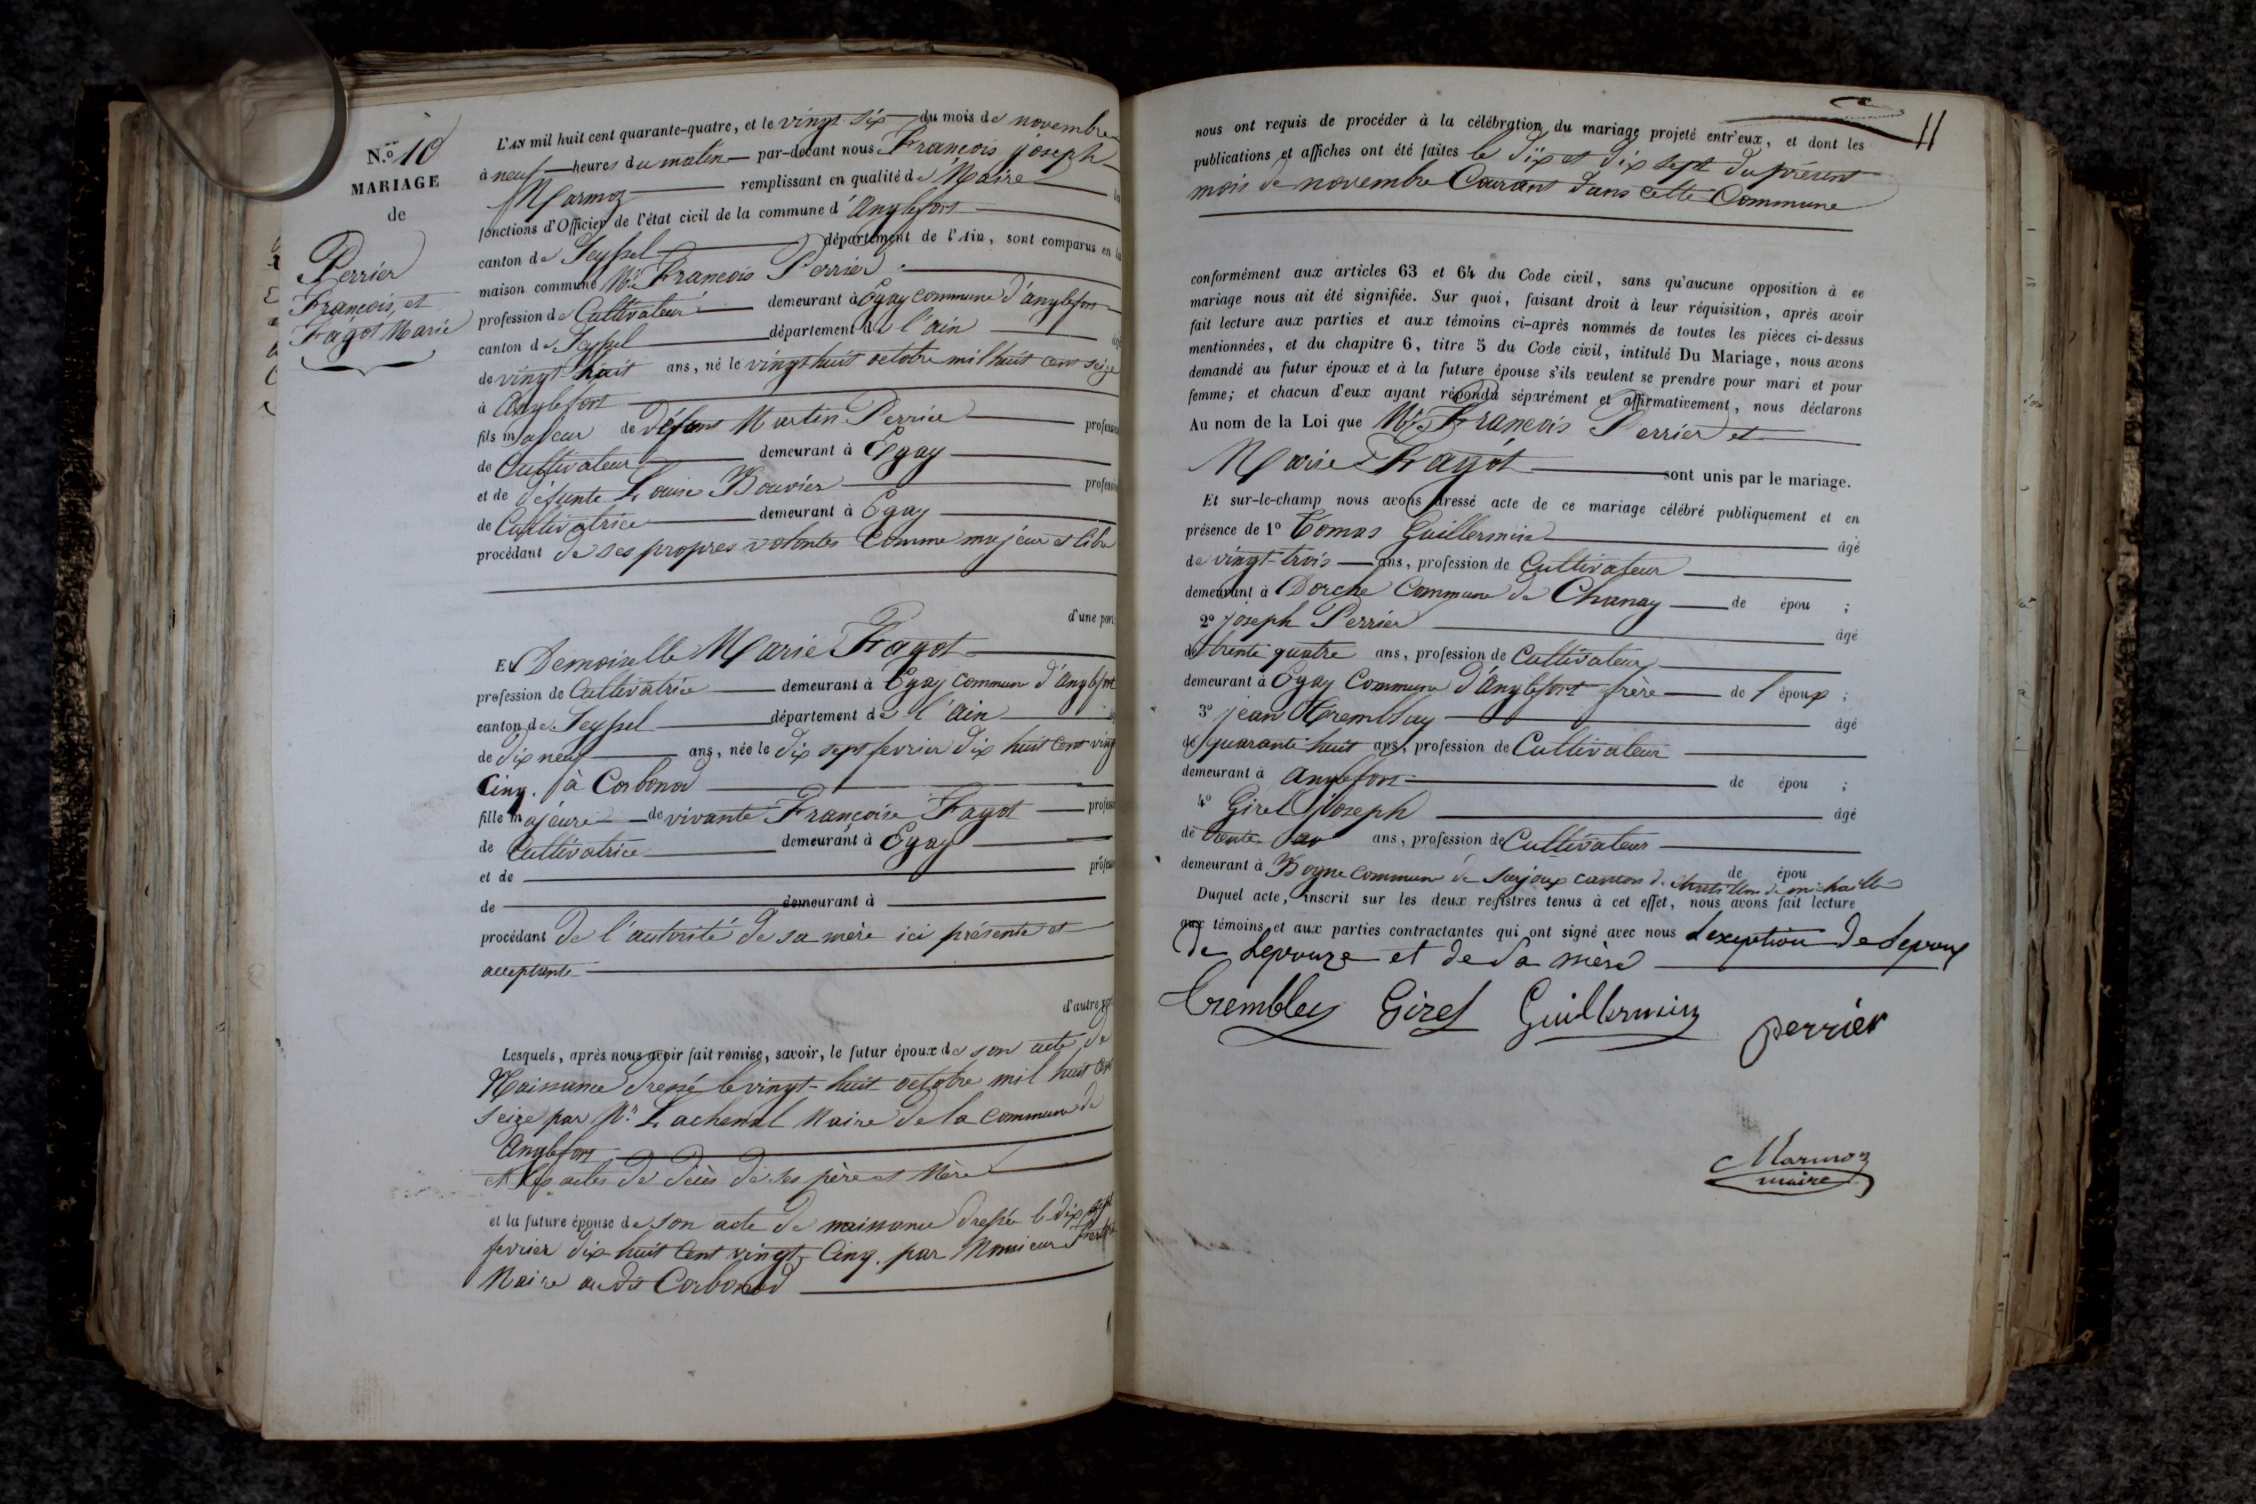 N.º 10
MARIAGE
de
Perrier
François, et
Fagot Marie
L'AN mil huit cent quarante-quatre, et le vingt six du mois de novembre
à neuf heures du matin par-devant nous François joseph
Marmoz remplissant en qualité de Maire
fonctions d'Officier de l'état civil de la commune d'Anglefort
canton de Seyssel département de l'Ain, sont comparus en la
maison commune Mr François Perrier
profession de Cultivateur demeurant à Egay commune d'anglefort
canton de Seyssel département de l'ain
de vingt-huit ans, né le vingt huit octobre mil huit cent seize
à Anglefort
fils majeur de défunt Martin Perrier profession
de Cultivateur demeurant à Egay
et de défunte Louise Bouvier profession
de Cultivatrice demeurant à Egay
procédant de ses propres volontés Comme majeur et libre
d'une part
Et Demoiselle Marie Fagot
profession de Cultivatrice demeurant à Egay commune d'Anglefort
canton de Seyssel département de l'ain
de dix neuf ans, née le dix sept fevrier dix huit cent vingt
Cinq. à Corbonod
fille majeure de vivante Françoise Fagot profession
de Cultivatrice demeurant à Egay
et de profession
de demeurant à
procédant de l'autorité de sa mère ici présente et
acceptante
d'autre part
Lesquels, après nous avoir fait remise, savoir, le futur époux de son acte de
Naissance dressé le vingt-huit octobre mil huit cent
seize par Mr. Lachenal Maire de la commune de
Anglefort
et les actes de décès de ses père et Mère
et la future épouse de son acte de naissance dressée le dix sept
fevrier dix huit cent vingt Cinq. par Monsieur
Maire au dit Corbonod
11
nous ont requis de procéder à la célébration du mariage projeté entr'eux, et dont les
publications et affiches ont été faites le dix et dix sept du présent
mois de novembre Courant dans cette Commune
conformément aux articles 63 et 64 du Code civil, sans qu'aucune opposition à ce
mariage nous ait été signifiée. Sur quoi, faisant droit à leur réquisition, après avoir
fait lecture aux parties et aux témoins ci-après nommés de toutes les pièces ci-dessus
mentionnées, et du chapitre 6, titre 5 du Code civil, intitulé Du Mariage, nous avons
demandé au futur époux et à la future épouse s'ils veulent se prendre pour mari et pour
femme; et chacun d'eux ayant répondu séparément et affirmativement, nous déclarons
Au nom de la Loi que Mr. François Perrier et
Marie Fagot sont unis par le mariage.
Et sur-le-champ nous avons dressé acte de ce mariage célébré publiquement et en
présence de 1º Tomas Guillermin âgé
de vingt-trois ans, profession de Cultivateur
demeurant à Dorche Commune de Chanay de épou ;
2º joseph Perrier âgé
de trente quatre ans, profession de Cultivateur
demeurant à Egay Commune d'Anglefort frère de l'époux ;
3º jean Tremblay âgé
de quarante huit ans, profession de Cultivateur
demeurant à Anglefort de épou ;
4º Girel joseph âgé
de trente ans, profession de Cultivateur
demeurant à Bogne commune de Surjoux canton de chatillon de michaille de épou
Duquel acte, inscrit sur les deux registres tenus à cet effet, nous avons fait lecture
aux témoins et aux parties contractantes qui ont signé avec nous dexeption de Lepoux
de Lepouze et de Sa mère
Trembley Girel Guillermin perrier
Marmoz
maire